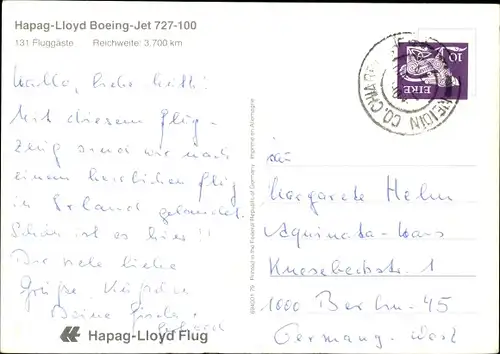 Hapag-Lloyd Boeing-Jet 727-100
131 Fluggäste Reichweite: 3.700 km
Hallo, liebe
Mit diesem Flug-
zeug sind wir nach
einem herrlichen Flug
in Irland gelandet.
Schön ist es hier!!
Dir viele liebe
Grüße,
Deine
Hapag-Lloyd Flug
Printed in the Federal Republic of Germany · Imprimé en Allemagne
10
EIRE
CO. CHIARRAI
An
Margarete Helm
Aquinata-Haus
Knesebeckstr. 1
1000 Berlin-45
Germany-West